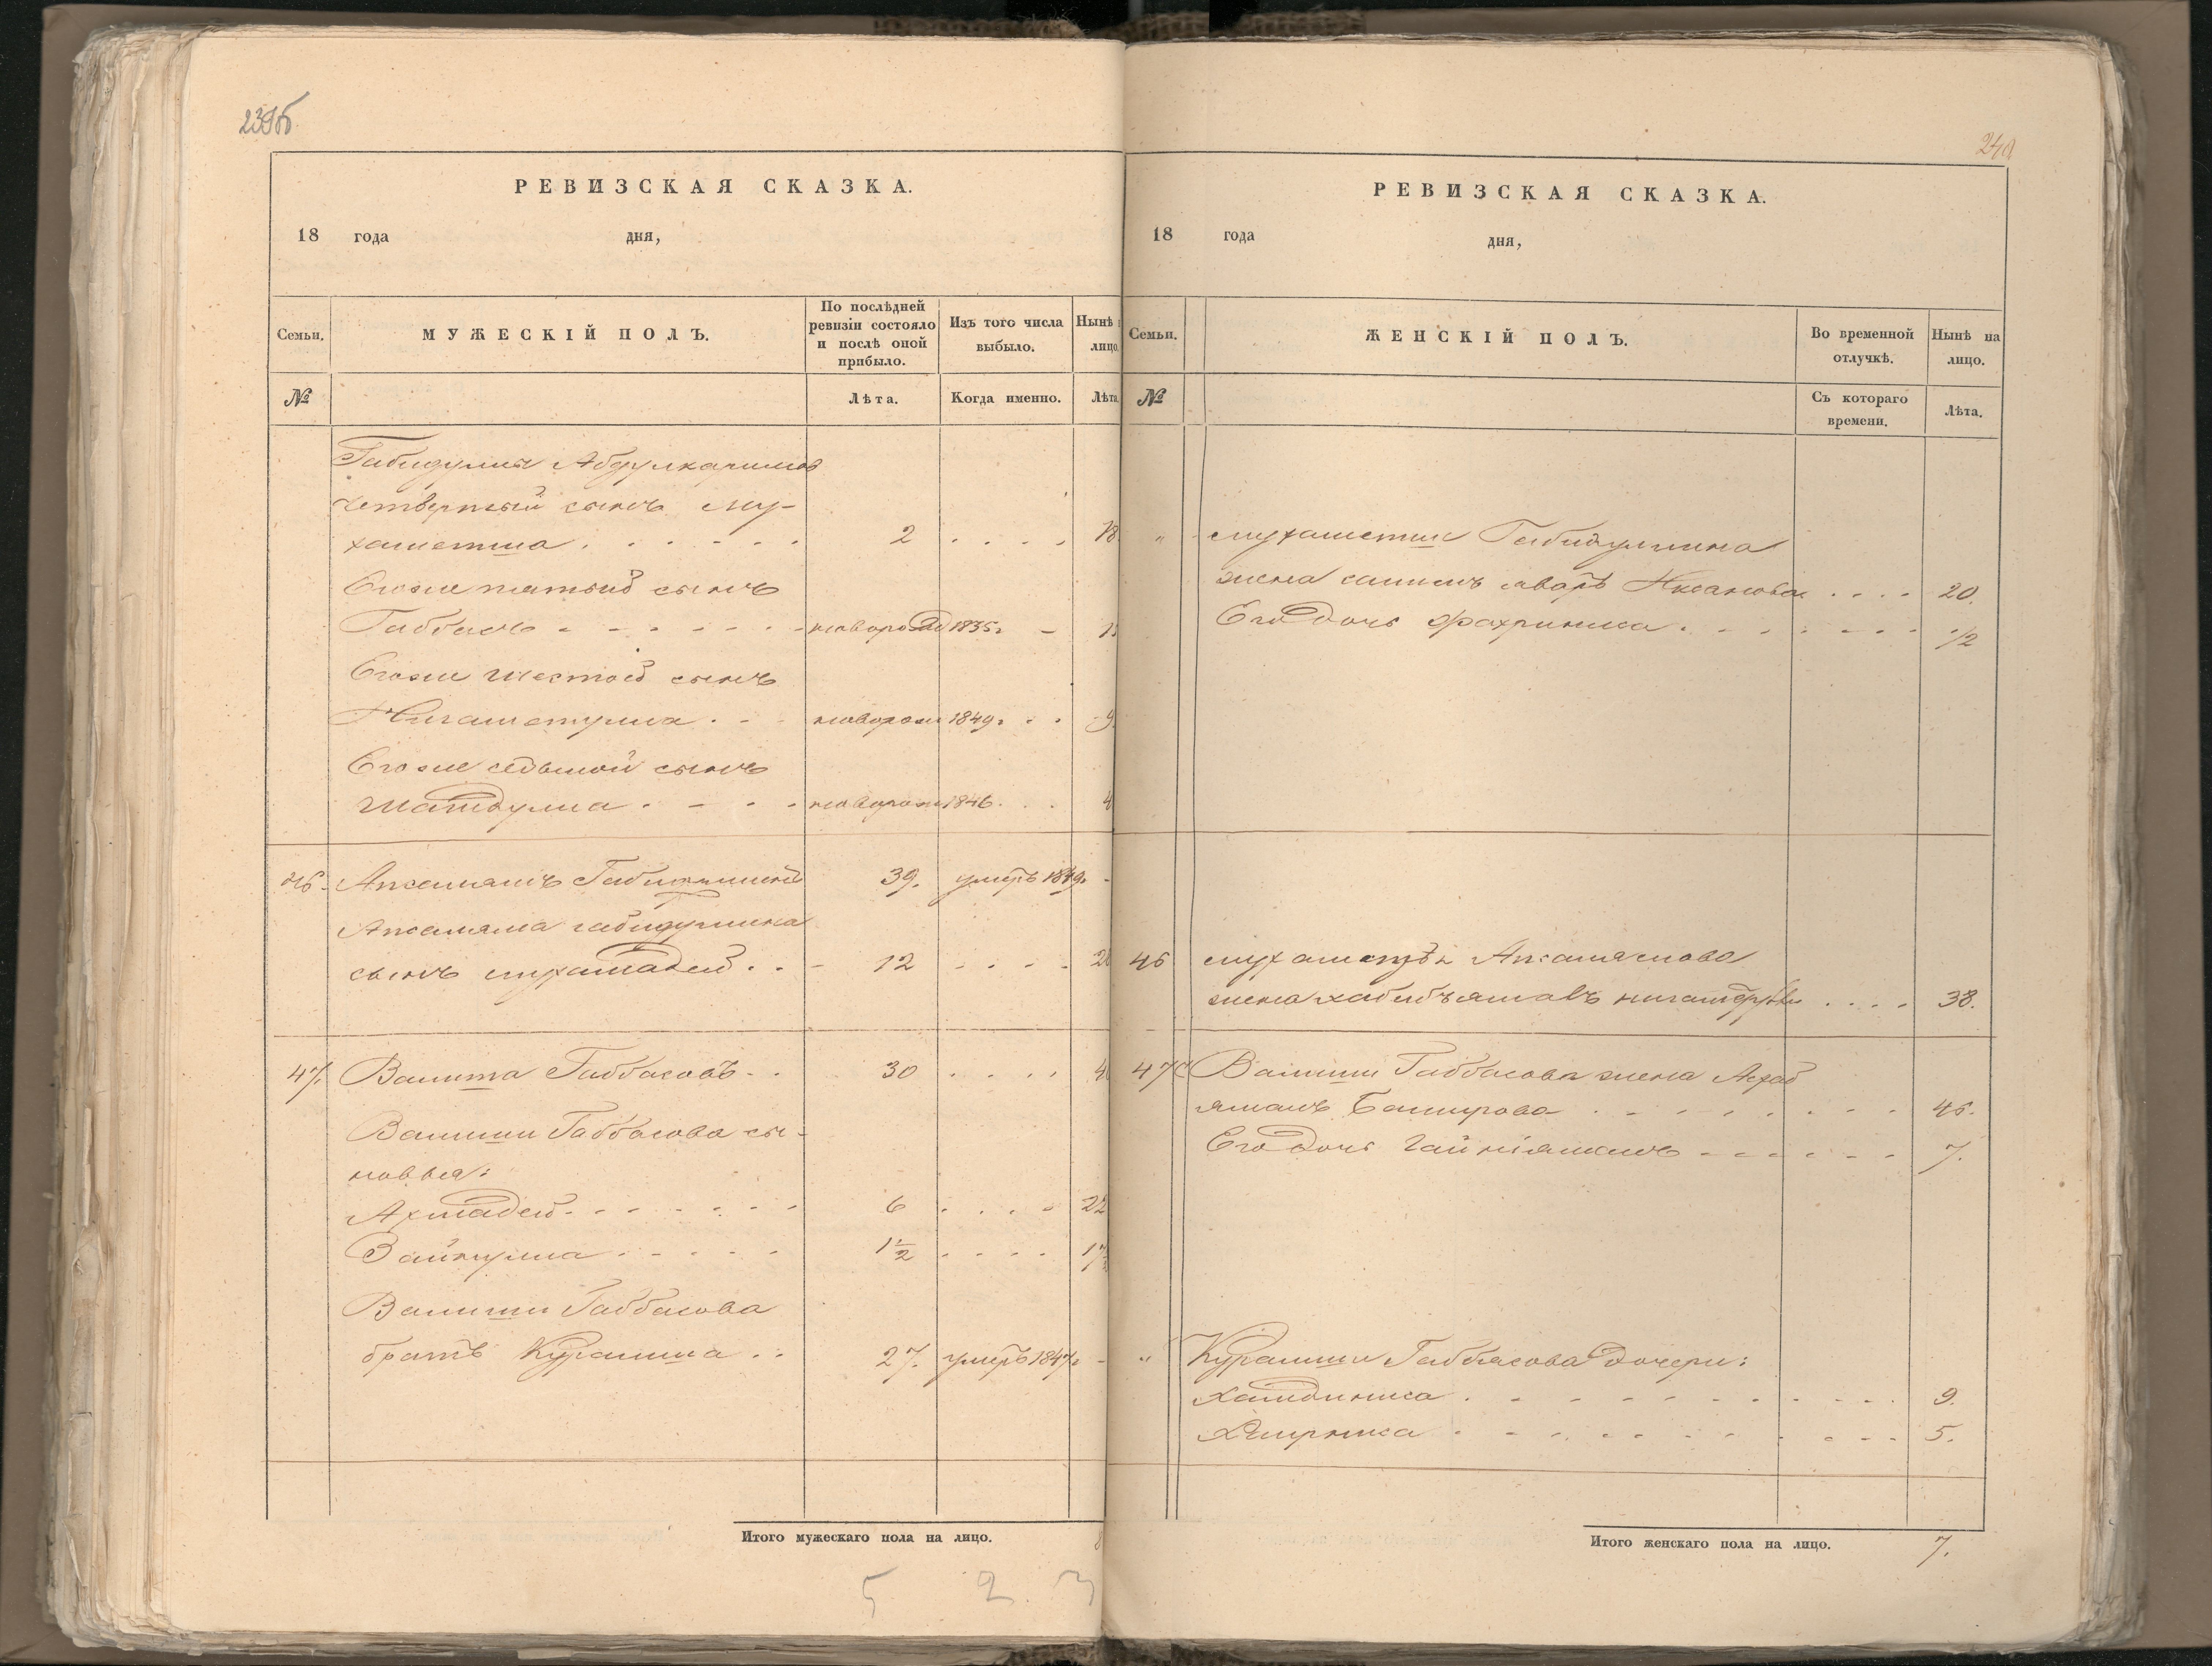 239б
РЕВИЗСКАЯ СКАЗКА.
18 года дня,
Семьи. МУЖЕСКІЙ ПОЛЪ. По послѣдней ревизіи состояло и послѣ оной прибыло. Изъ того числа выбыло. Нынѣ лицо.
№ Лѣта. Когда именно. Лѣта.
Габидулла Абдулкаримов
четвертый сынъ Му-
хаметша . . . . . . 2 . . . . 18
Егоже пятый сынъ
Габбасъ - - - - - - новорожд 1835г -
Егоже шестой сынъ
Нигаметулла . - - новорож 1849г . . 9
Егоже седьмой сынъ
Шагидулла . - - - новорож 1846 . . 4
46. 39. умеръ 1849г -
габидуллина
сынъ мухамадей . . - 12 . . . . 28
47. Валиша Габбасовъ - . 30 . . . . 46
Валиши Габбасова сы-
новья:
Ахмадей - - - - - - 6 . . . . 22
Зайнулла . - - - - 1½ . . . . 17
Валиши Габбасова
братъ Курамша . . 27. умеръ 1847г -
Итого мужескаго пола на лицо. 8
5 2 3
240
РЕВИЗСКАЯ СКАЗКА.
18 года дня,
Семьи. ЖЕНСКІЙ ПОЛЪ. Во временной отлучкѣ. Нынѣ на лицо.
№ Съ котораго времени. Лѣта.
" мухаметши Габидуллина
жена . . . . 20.
Его дочь Фахриниса . - - - - - - ½
46 Апсалямова
жена . . . . 38.
47 Валиши Габбасова жена
Баширова . - - - - - - 45.
Его дочь Гайніямалъ - - - - - - 7.
" Курамши Габбасова дочери:
Хамдиниса . - - - - - - - - 9.
. - - - - - - - - 5.
Итого женскаго пола на лицо. 7.